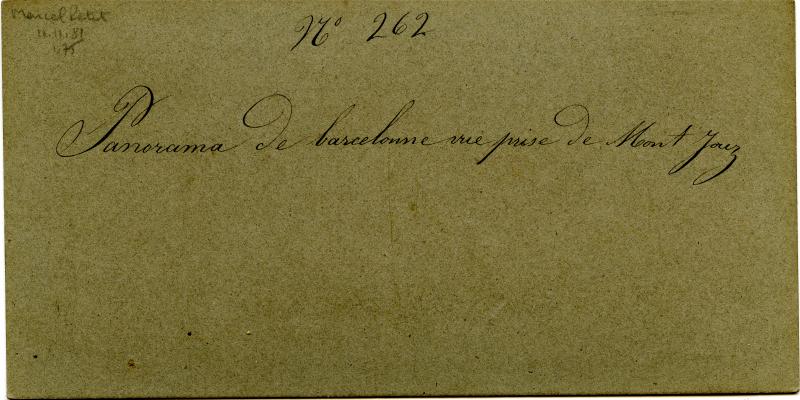 Marcel Petit
11.11.81
175
Nº 262
Panorama de barcelonne vue prise de Mont Jouz